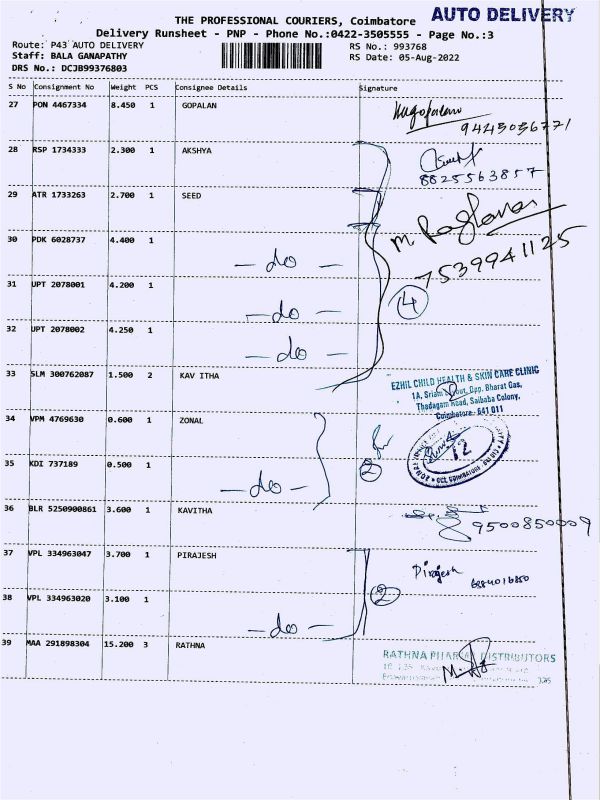 THE PROFESSIONAL COURIERS, Coimbatore
AUTO DELIVERY
Delivery Runsheet - PNP - Phone No.:0422-3505555 - Page No.:3
Route: P43 AUTO DELIVERY
RS No.: 993768
Staff: BALA GANAPATHY
RS Date: 05-Aug-2022
DRS No.: DCJB99376803
S No Consignment No Weight PCS Consignee Details Signature
27 PON 4467334 8.450 1 GOPALAN
9443036771
28 RSP 1734333 2.300 1 AKSHYA
8825563857
29 ATR 1733263 2.700 1 SEED
M. Raghavan
30 PDK 6028737 4.400 1 - do -
7539941125
31 UPT 2078001 4.200 1 - do -
4
32 UPT 2078002 4.250 1 - do -
33 SLM 300762087 1.500 2 KAV ITHA
EZHIL CHILD HEALTH & SKIN CARE CLINIC
1A, Sriam Layout, Opp. Bharat Gas,
Thadagam Road, Saibaba Colony,
Coimbatore - 641 011
34 VPM 4769630 0.600 1 ZONAL
12
35 KDI 737189 0.500 1 - do -
2
36 BLR 5250900861 3.600 1 KAVITHA
9500850009
37 VPL 334963047 3.700 1 PIRAJESH
Pirajesh
38 VPL 334963020 3.100 1 - do -
2
39 MAA 291898304 15.200 3 RATHNA
RATHNA PHARMA DISTRIBUTORS